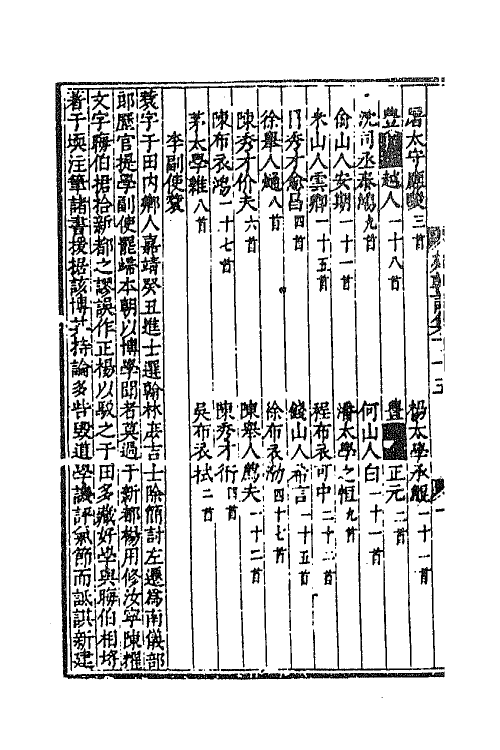 屠太守三首
楊太學承鯤一十一首
豐越人一十八首
豐正元二首
沈司丞泰鴻九首
何山人白一十一首
俞山人安期一十一首
潘太學之恒九首
山人雲卿一十五首
程布衣可中二十二首
秀才四首
錢山人希言一十五首
徐舉人熥八首
徐布衣𤊹四十七首
陳秀才价夫六首
陳舉人薦夫一十二首
陳布衣鴻一十七首
陳秀才衎四首
茅太學維八首
吳布衣拭二首
李副使蓘
蓘字子田內鄉人嘉靖癸丑進士選翰林庶吉士除簡討左遷為南儀部
郎歷官提學副使罷歸本朝以博學聞者莫過于新都楊用修汝寧陳耀
文字晦伯捃拾新都之謬誤作正楊以駁之子田多藏好學與晦伯相埒
著于注筆諸書援據該博其持論多訾毀道學譏評氣節而詆諆新建